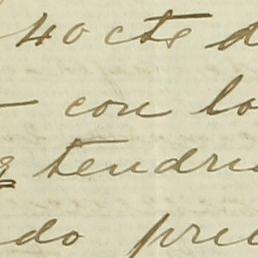 40 cts d
con lo
tendri
do pre